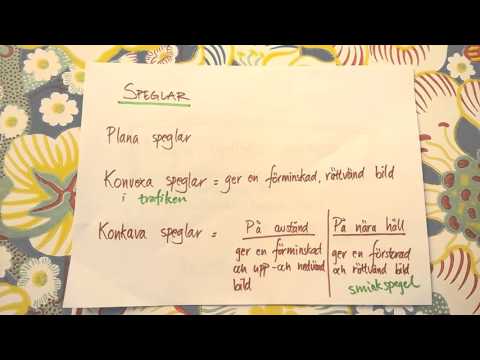 SPEGLAR
Plana speglar
Konvexa speglar = ger en förminskad, rättvänd bild
i trafiken
Konkava speglar =
På avstånd
ger en förminskad
och upp-och nedvänd
bild
På nära håll
ger en förstorad
och rättvänd bild
sminkspegel